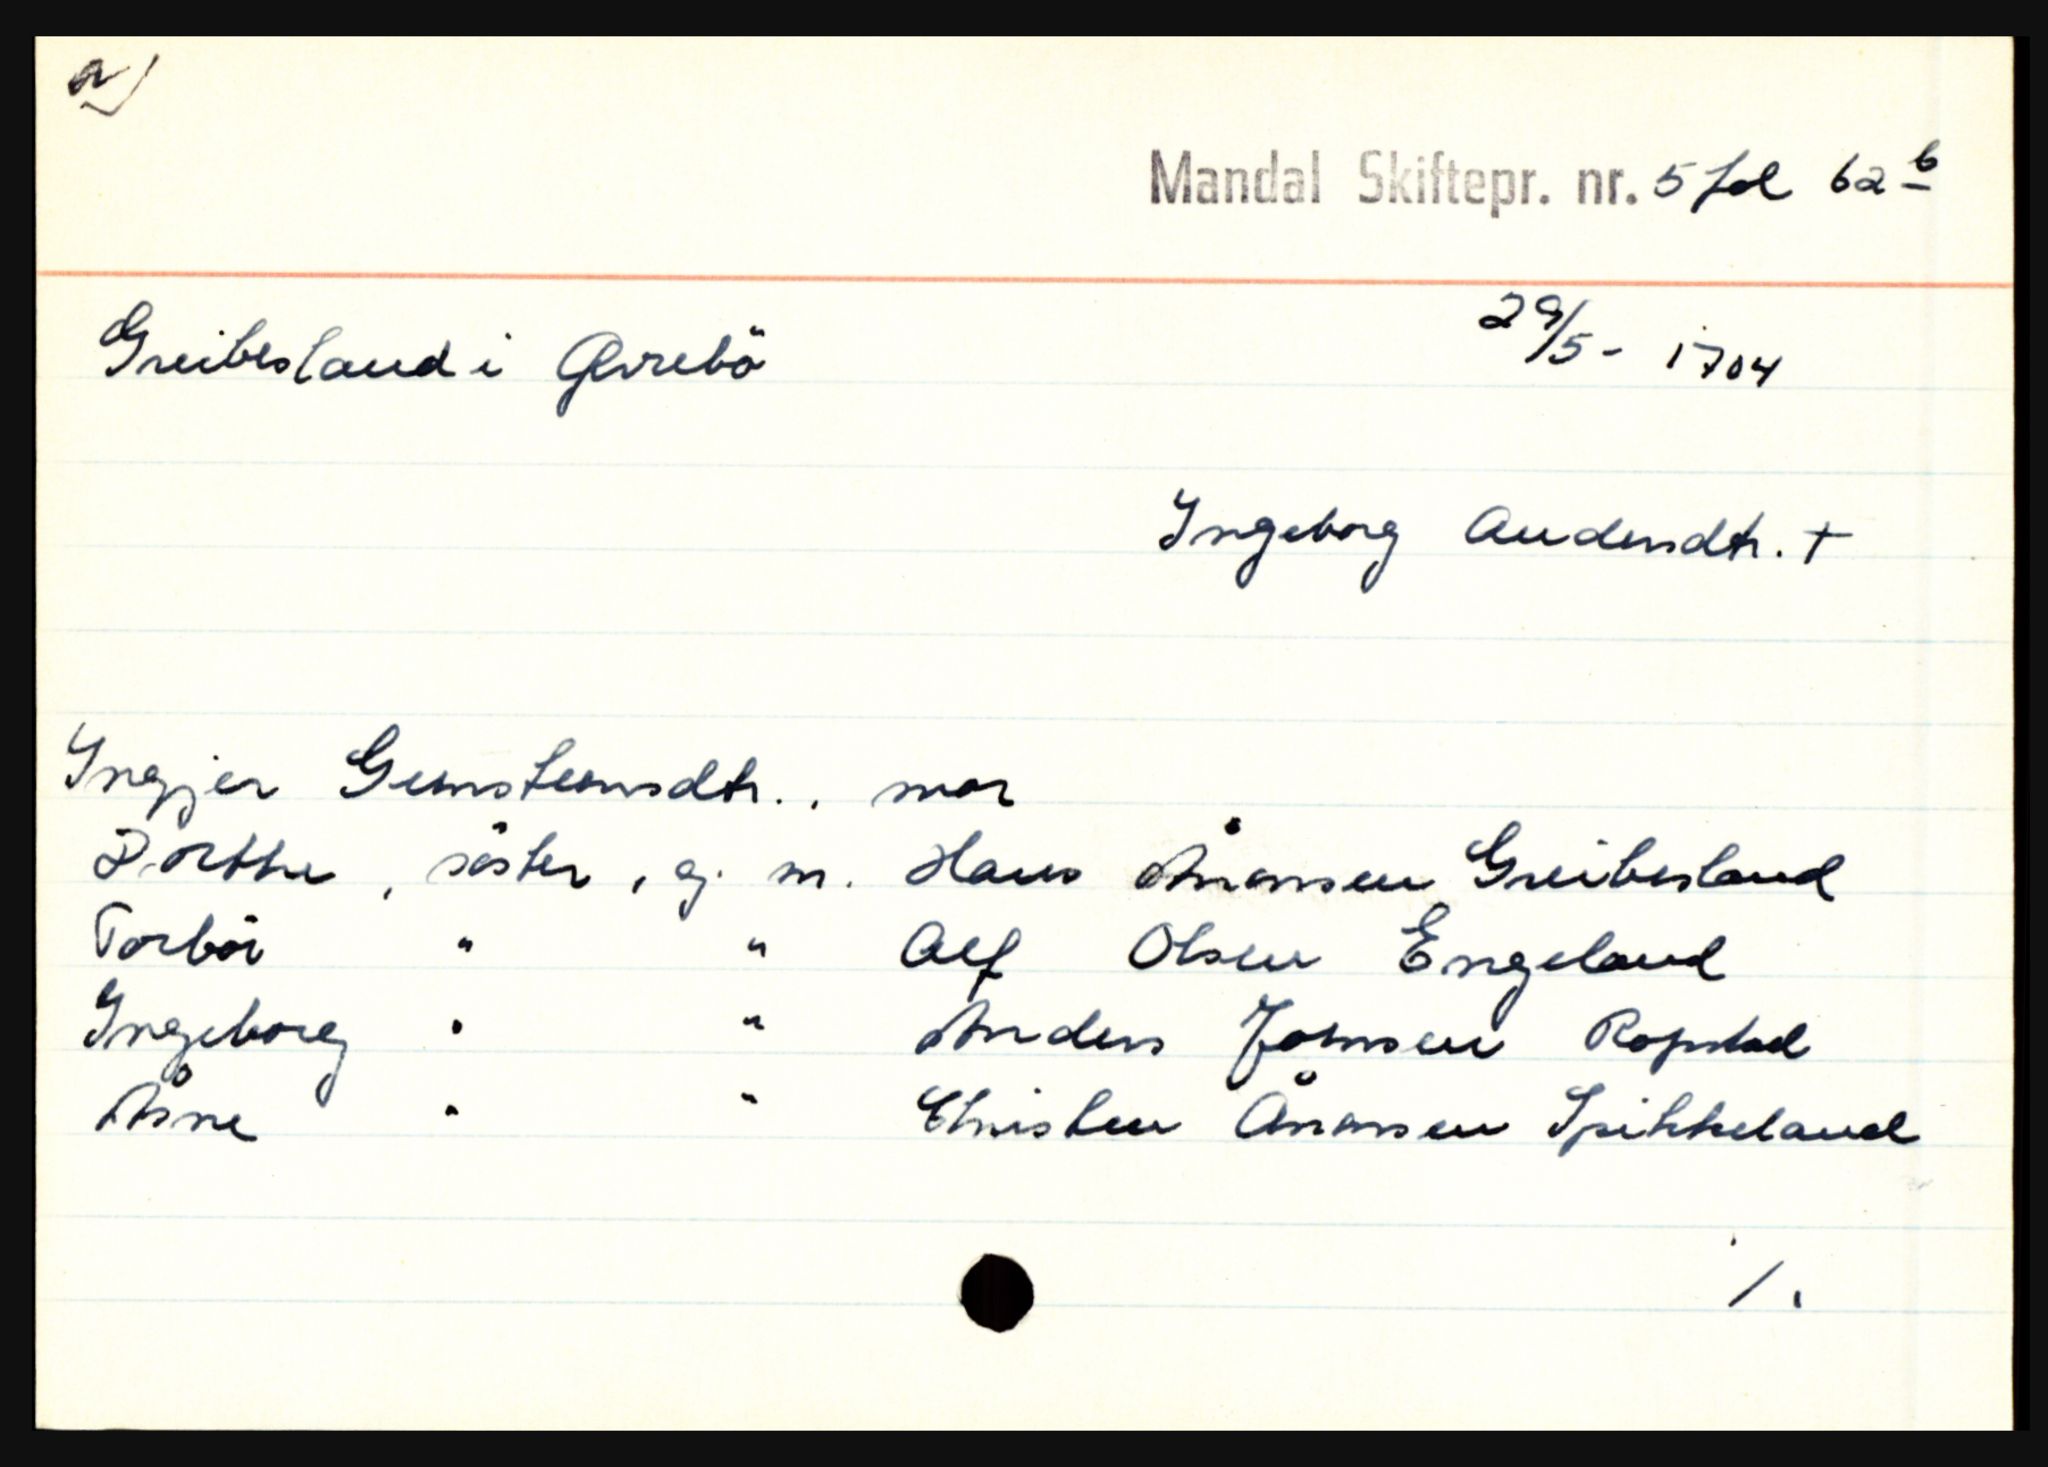 a)
Mandal Skiftepr. nr. 5 fol 62 b
Greibesland i Øvrebö
29/5- 1704
Ingeborg Audensdtr. +
Ingjer Gunstensdtr., mor
Dorthe, söster, g. m. Hans Ånonsen Greibesland
Torbör " " Alf Olsen Engeland
Ingeborg " " Anders Johnsen Ropstad
Åsne " " Christen Ånonsen Spikkeland
/.